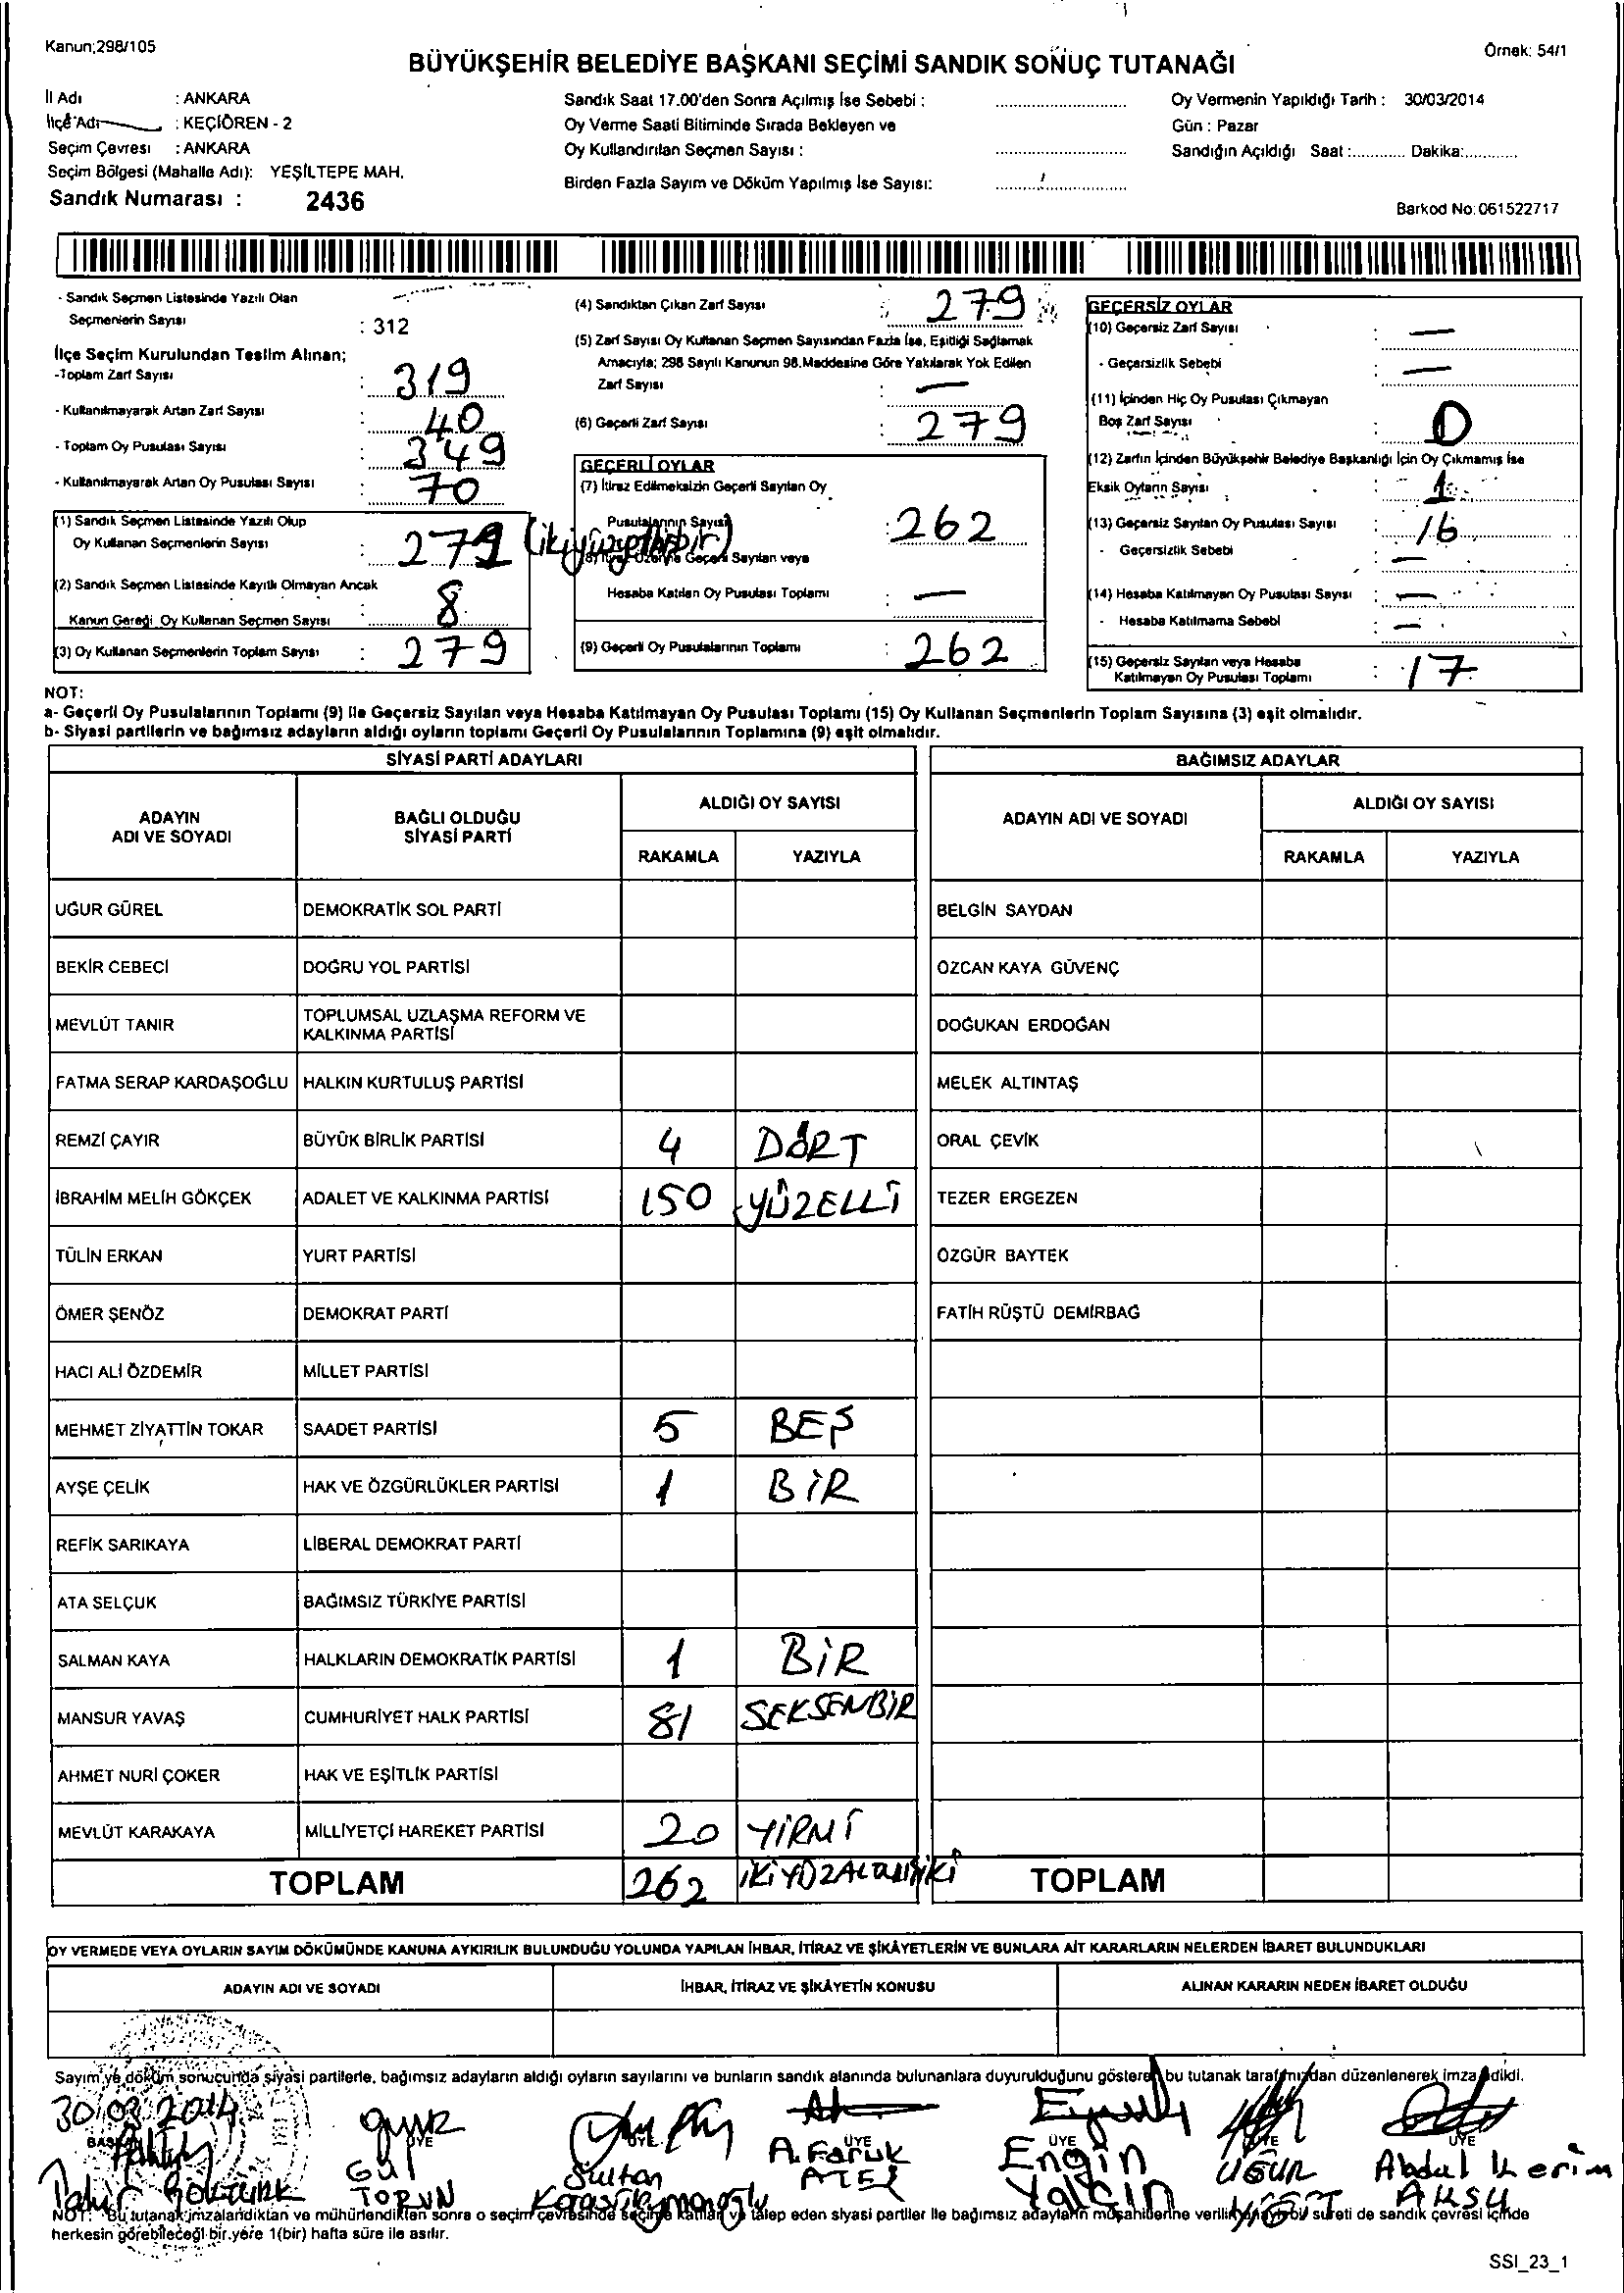 Kanun;298/105
Örnek: 54/1
BÜYÜKŞEHİR BELEDİYE BAŞKANI SEÇİMİ SANDIK SONUÇ TUTANAĞI
İl Adı : ANKARA
İlçe Adı : KEÇİÖREN - 2
Seçim Çevresi : ANKARA
Seçim Bölgesi (Mahalle Adı): YEŞİLTEPE MAH.
Sandık Numarası : 2436
Sandık Saat 17.00'den Sonra Açılmış İse Sebebi :
Oy Verme Saati Bitiminde Sırada Bekleyen ve
Oy Kullandırılan Seçmen Sayısı :
Birden Fazla Sayım ve Döküm Yapılmış İse Sayısı:
Oy Vermenin Yapıldığı Tarih : 30/03/2014
Gün : Pazar
Sandığın Açıldığı Saat :............ Dakika:............
Barkod No:061522717
- Sandık Seçmen Listesinde Yazılı Olan
Seçmenlerin Sayısı : 312
İlçe Seçim Kurulundan Teslim Alınan;
-Toplam Zarf Sayısı : 319
- Kullanılmayarak Artan Zarf Sayısı : 40
- Toplam Oy Pusulası Sayısı : 349
- Kullanılmayarak Artan Oy Pusulası Sayısı : 70
(1) Sandık Seçmen Listesinde Yazılı Olup
Oy Kullanan Seçmenlerin Sayısı : 271 (ikiyüzyetmişbir)
(2) Sandık Seçmen Listesinde Kayıtlı Olmayan Ancak
Kanun Gereği Oy Kullanan Seçmen Sayısı : 8
(3) Oy Kullanan Seçmenlerin Toplam Sayısı : 279
(4) Sandıktan Çıkan Zarf Sayısı : 279
(5) Zarf Sayısı Oy Kullanan Seçmen Sayısından Fazla İse, Eşitliği Sağlamak
Amacıyla; 298 Sayılı Kanunun 98.Maddesine Göre Yakılarak Yok Edilen
Zarf Sayısı : —
(6) Geçerli Zarf Sayısı : 279
GEÇERLİ OYLAR
(7) İtiraz Edilmeksizin Geçerli Sayılan Oy
Pusulalarının Sayısı : 262
(8) İtiraz Üzerine Geçerli Sayılan veya
Hesaba Katılan Oy Pusulası Toplamı : —
(9) Geçerli Oy Pusulalarının Toplamı : 262
GEÇERSİZ OYLAR
(10) Geçersiz Zarf Sayısı : —
- Geçersizlik Sebebi : —
(11) İçinden Hiç Oy Pusulası Çıkmayan
Boş Zarf Sayısı : 0
(12) Zarfın İçinden Büyükşehir Belediye Başkanlığı İçin Oy Çıkmamış İse
Eksik Oyların Sayısı : 1
(13) Geçersiz Sayılan Oy Pusulası Sayısı : 16
- Geçersizlik Sebebi : —
(14) Hesaba Katılmayan Oy Pusulası Sayısı : —
- Hesaba Katılmama Sebebi : —
(15) Geçersiz Sayılan veya Hesaba
Katılmayan Oy Pusulası Toplamı : 17
NOT:
a- Geçerli Oy Pusulalarının Toplamı (9) İle Geçersiz Sayılan veya Hesaba Katılmayan Oy Pusulası Toplamı (15) Oy Kullanan Seçmenlerin Toplam Sayısına (3) eşit olmalıdır.
b- Siyasi partilerin ve bağımsız adayların aldığı oyların toplamı Geçerli Oy Pusulalarının Toplamına (9) eşit olmalıdır.
SİYASİ PARTİ ADAYLARI
BAĞIMSIZ ADAYLAR
ADAYIN ADI VE SOYADI
BAĞLI OLDUĞU SİYASİ PARTİ
ALDIĞI OY SAYISI
RAKAMLA YAZIYLA
ADAYIN ADI VE SOYADI
ALDIĞI OY SAYISI
RAKAMLA YAZIYLA
UĞUR GÜREL DEMOKRATİK SOL PARTİ BELGİN SAYDAN
BEKİR CEBECİ DOĞRU YOL PARTİSİ ÖZCAN KAYA GÜVENÇ
MEVLÜT TANIR TOPLUMSAL UZLAŞMA REFORM VE KALKINMA PARTİSİ DOĞUKAN ERDOĞAN
FATMA SERAP KARDAŞOĞLU HALKIN KURTULUŞ PARTİSİ MELEK ALTINTAŞ
REMZİ ÇAYIR BÜYÜK BİRLİK PARTİSİ 4 DÖRT ORAL ÇEVİK
İBRAHİM MELİH GÖKÇEK ADALET VE KALKINMA PARTİSİ 150 YÜZELLİ TEZER ERGEZEN
TÜLİN ERKAN YURT PARTİSİ ÖZGÜR BAYTEK
ÖMER ŞENÖZ DEMOKRAT PARTİ FATİH RÜŞTÜ DEMİRBAĞ
HACI ALİ ÖZDEMİR MİLLET PARTİSİ
MEHMET ZİYATTİN TOKAR SAADET PARTİSİ 5 BEŞ
AYŞE ÇELİK HAK VE ÖZGÜRLÜKLER PARTİSİ 1 BİR
REFİK SARIKAYA LİBERAL DEMOKRAT PARTİ
ATA SELÇUK BAĞIMSIZ TÜRKİYE PARTİSİ
SALMAN KAYA HALKLARIN DEMOKRATİK PARTİSİ 1 BİR
MANSUR YAVAŞ CUMHURİYET HALK PARTİSİ 81 SEKSENBİR
AHMET NURİ ÇOKER HAK VE EŞİTLİK PARTİSİ
MEVLÜT KARAKAYA MİLLİYETÇİ HAREKET PARTİSİ 20 YİRMİ
TOPLAM 262 İKİYÜZALTMIŞİKİ TOPLAM
OY VERMEDE VEYA OYLARIN SAYIM DÖKÜMÜNDE KANUNA AYKIRILIK BULUNDUĞU YOLUNDA YAPILAN İHBAR, İTİRAZ VE ŞİKÂYETLERİN VE BUNLARA AİT KARARLARIN NELERDEN İBARET BULUNDUKLARI
ADAYIN ADI VE SOYADI İHBAR, İTİRAZ VE ŞİKÂYETİN KONUSU ALINAN KARARIN NEDEN İBARET OLDUĞU
Sayım ve döküm sonucunda siyasi partilerle, bağımsız adayların aldığı oyların sayılarını ve bunların sandık alanında bulunanlara duyurulduğunu gösteren bu tutanak tarafımızdan düzenlenerek imza edildi.
30.03.2014
BAŞKAN ÜYE ÜYE ÜYE ÜYE ÜYE ÜYE
Tahir Göktürk
Gül TORUN
Sultan
A. Faruk ATEŞ
Engin Yalçın
UĞUR YİĞİT
Abdul Kerim AKSU
NOT: Bu tutanak imzalandıktan ve mühürlendikten sonra o seçim çevresinde seçime katılan ve talep eden siyasi partiler ile bağımsız adayların müşahitlerine verilir. Onaylı bir sureti de sandık çevresi içinde
herkesin görebileceği bir yere 1(bir) hafta süre ile asılır.
SSI_23_1